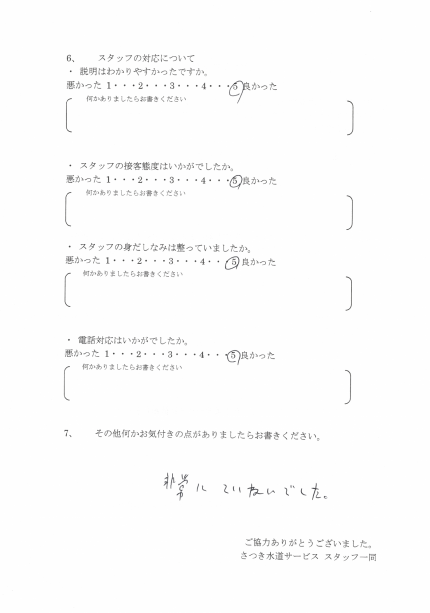 6、 スタッフの対応について
・ 説明はわかりやすかったですか。
悪かった 1・・・2・・・3・・・4・・・5 良かった
何かありましたらお書きください
・ スタッフの接客態度はいかがでしたか。
悪かった 1・・・2・・・3・・・4・・・5 良かった
何かありましたらお書きください
・ スタッフの身だしなみは整っていましたか。
悪かった 1・・・2・・・3・・・4・・・5 良かった
何かありましたらお書きください
・ 電話対応はいかがでしたか。
悪かった 1・・・2・・・3・・・4・・・5 良かった
何かありましたらお書きください
7、 その他何かお気付きの点がありましたらお書きください。
非常に ていねいでした。
ご協力ありがとうございました。
さつき水道サービス スタッフ一同